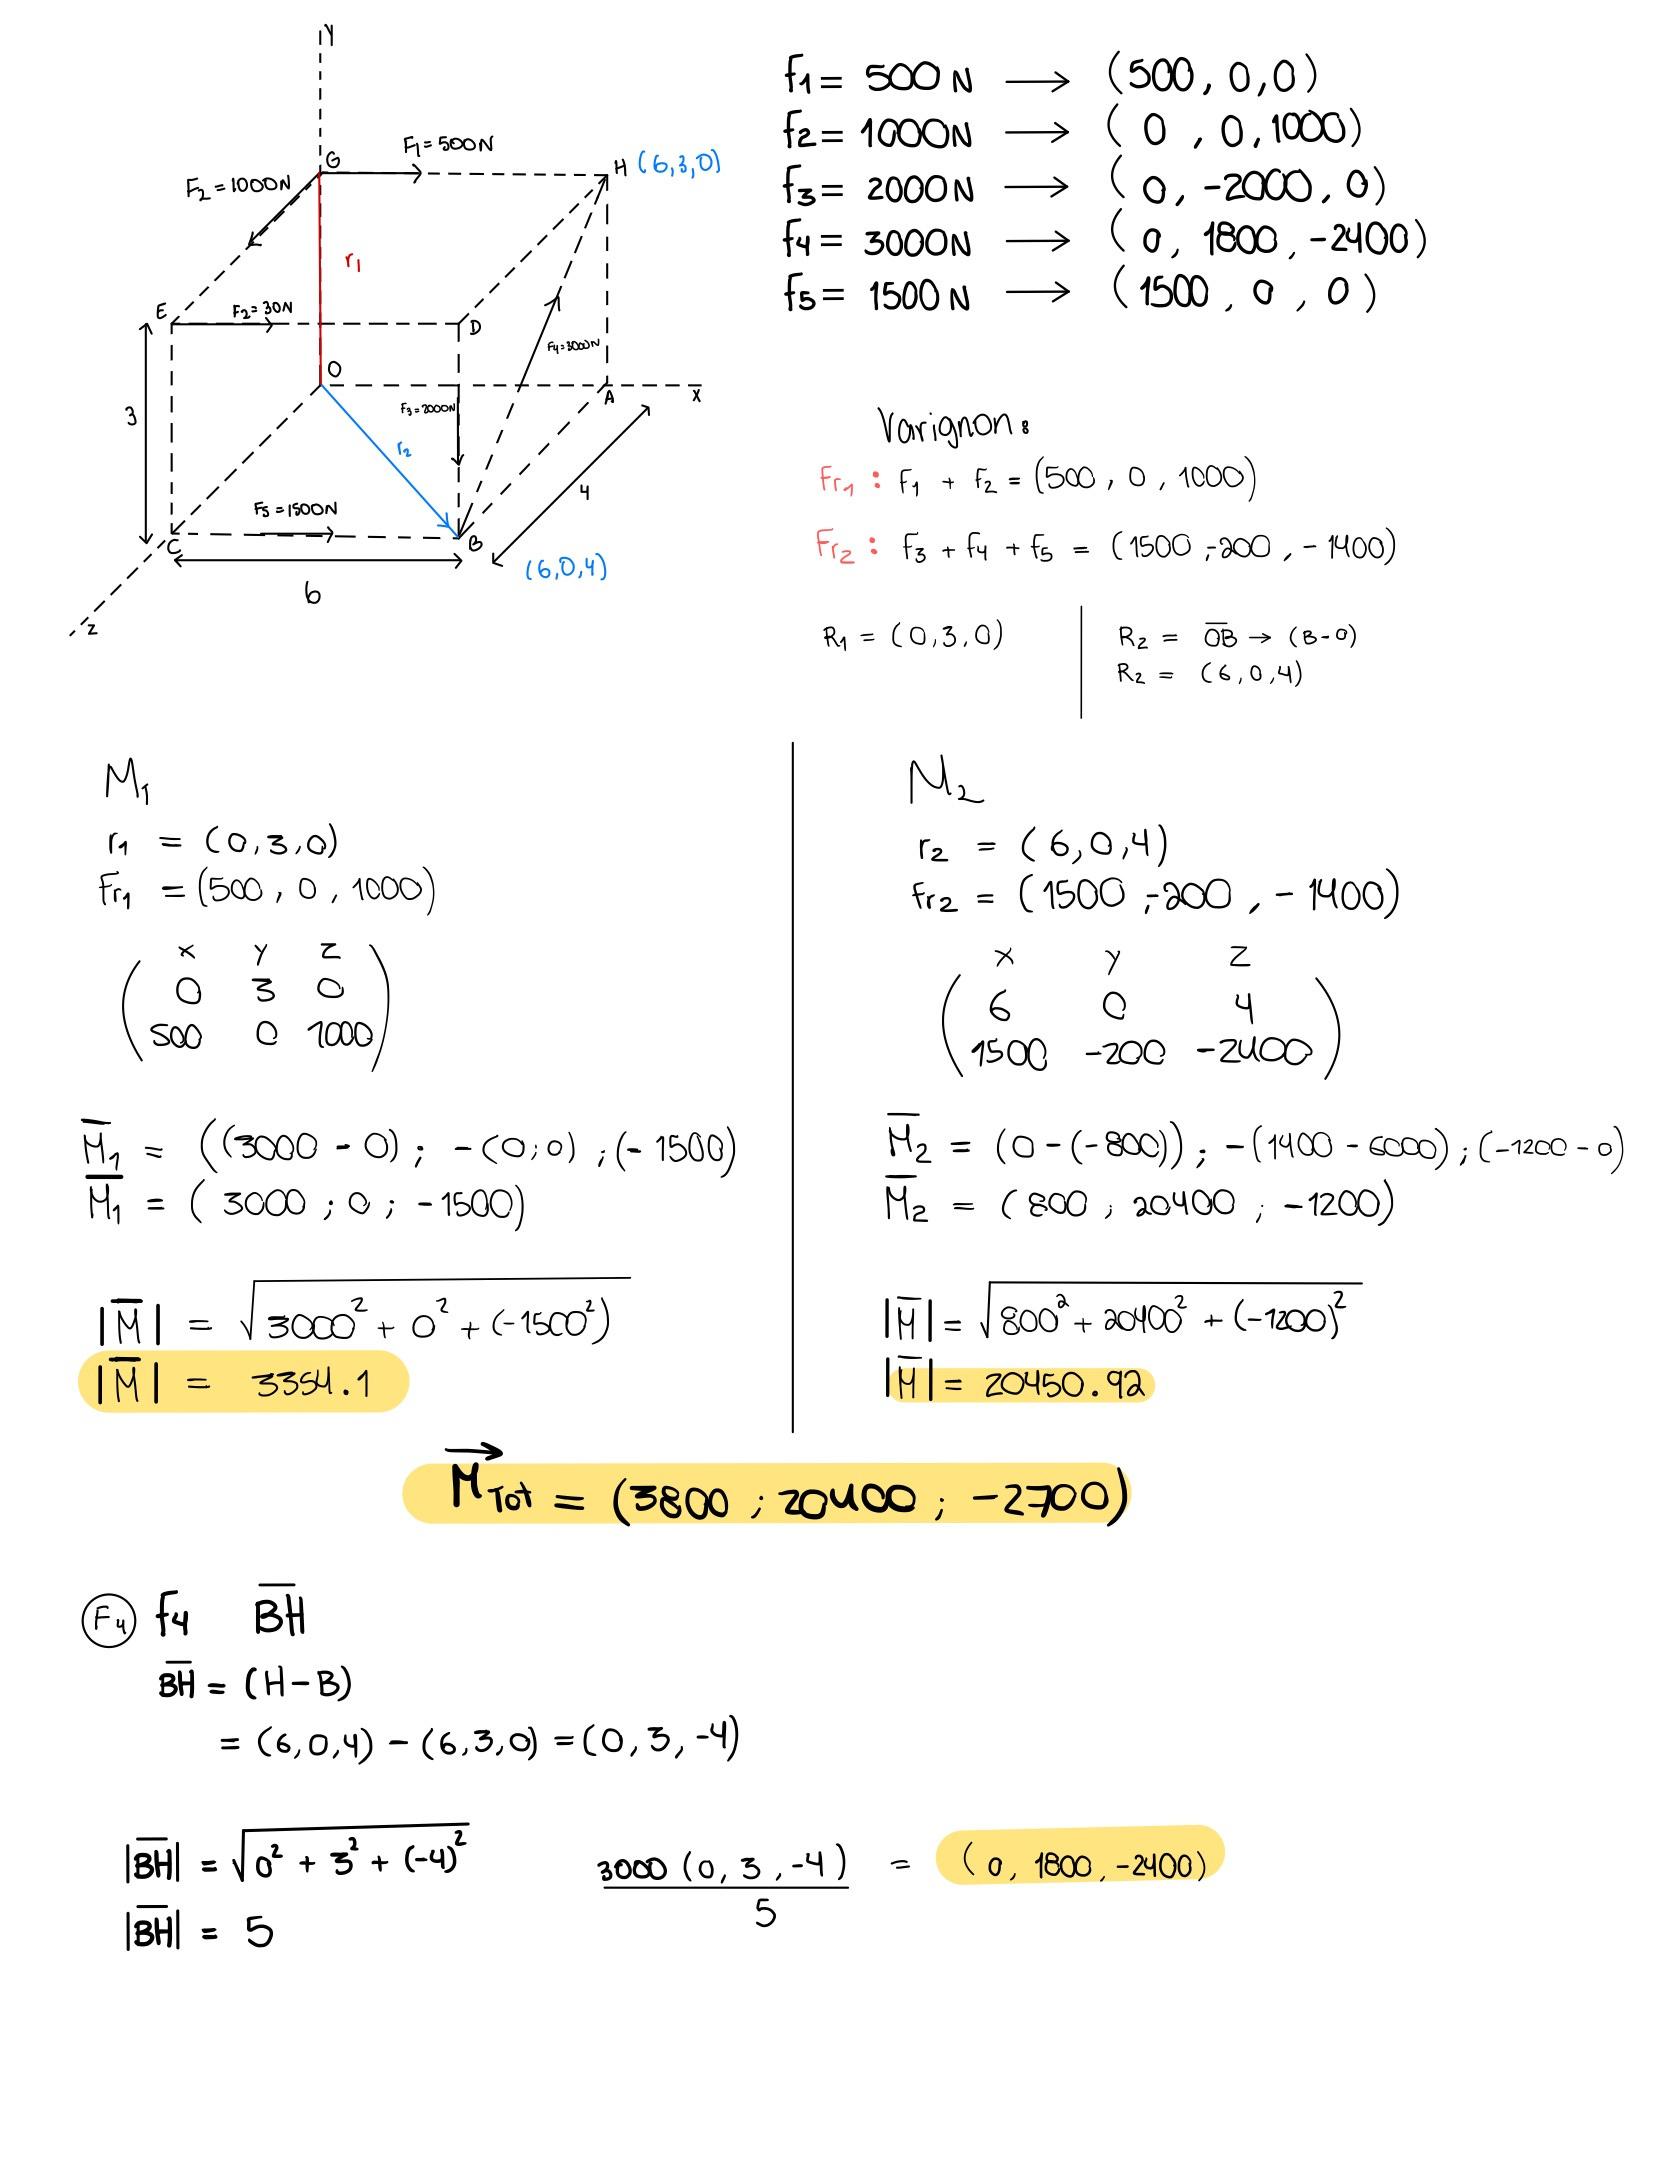 Y
G
F1 = 500N
H (6,3,0)
F2 = 1000N
r1
E
F2 = 30N
D
F4 = 3000N
O
3
F3 = 2000N
A
X
r2
4
F5 = 1500N
C
B
(6,0,4)
6
Z
f1 = 500 N → (500, 0,0)
f2 = 1000N → ( 0 , 0,1000)
f3 = 2000N → ( 0, -2000, 0)
f4 = 3000N → ( 0, 1800, -2400)
f5 = 1500 N → (1500 , 0 , 0)
Varignon:
Fr1 : F1 + f2 = (500 , 0 , 1000)
Fr2 : f3 + f4 + f5 = (1500 ,-200 , - 1400)
R1 = (0,3,0)
R2 = OB → (B-0)
R2 = (6,0,4)
M1
r1 = (0,3,0)
Fr1 = (500 , 0 , 1000)
x y z
0 3 0
500 0 1000
M1 = ((3000 - 0) ; -(0;0) ;(- 1500)
M1 = ( 3000 ; 0 ; -1500)
|M| = √3000² + 0² + (-1500²)
|M| = 3354.1
M2
r2 = (6,0,4)
fr2 = (1500 ,-200 , - 1400)
x y z
6 0 4
1500 -200 -2400
M2 = (0-(-800)) ; -(1400 - 6000) ; (-1200 - 0)
M2 = (800 ; 20400 ; -1200)
|M| = √800² + 20400² + (-1200)²
|M| = 20450.92
MTot = (3800 ; 20400 ; -2700)
F4 f4 BH
BH = (H-B)
= (6,0,4) - (6,3,0) = (0, 3, -4)
|BH| = √0² + 3² + (-4)²
|BH| = 5
3000 (0, 3, -4) = (0, 1800, -2400)
5